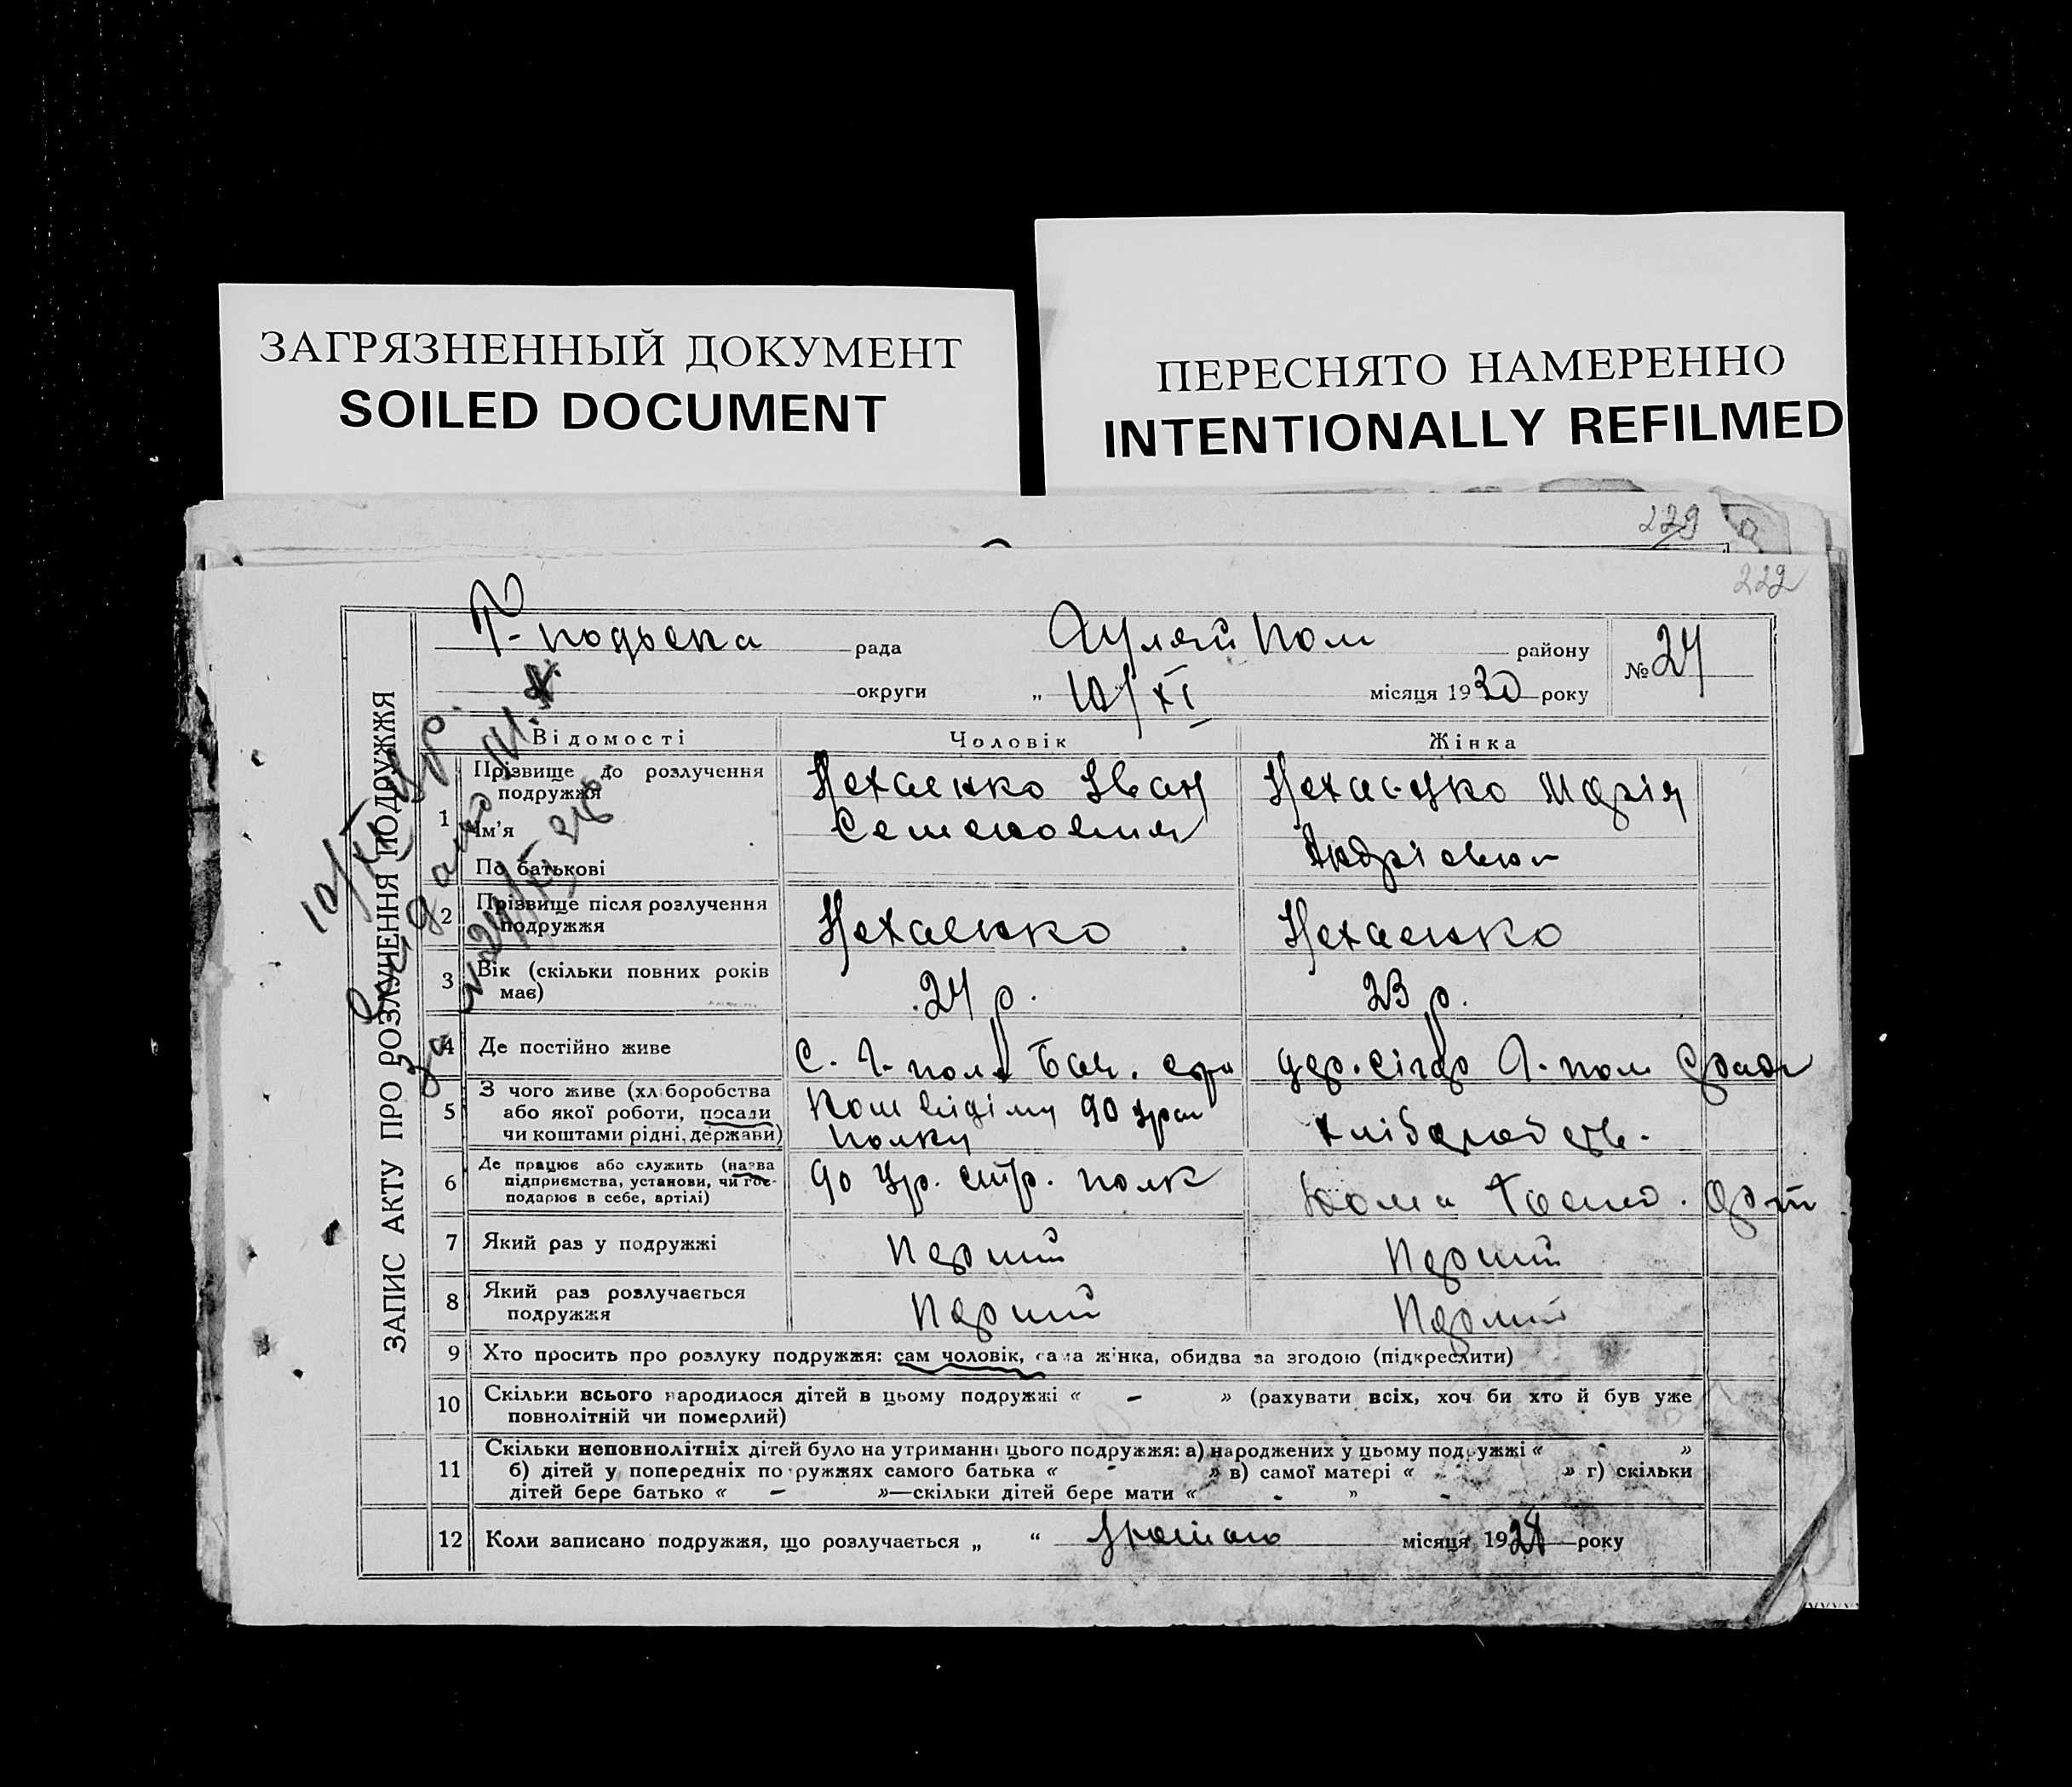 ЗАГРЯЗНЕННЫЙ ДОКУМЕНТ
SOILED DOCUMENT
ПЕРЕСНЯТО НАМЕРЕННО
INTENTIONALLY REFILMED
229
222
ЗАПИС АКТУ ПРО РОЗЛУЧЕННЯ ПОДРУЖЖЯ
рада Гуляй Пол району № 24
округи „ 10/XI місяця 1930 року
Відомості Чоловік Жінка
1 Прізвище до розлучення Нехаенко Іван Нехаенко Марія
подружжя
Ім'я Семенович Андріевна
По батькові
2 Прізвище після розлучення Нехаенко Нехаенко
подружжя
3 Вік (скільки повних років 24 р. 23 р.
має)
4 Де постійно живе С. Г-пол
5 З чого живе (хліборобства 90
або якої роботи, посади полку
чи коштами рідні, держави)
6 Де працює або служить (назва 90 стр. полк
підприємства, установи, чи гос-
подарює в себе, артілі)
7 Який раз у подружжі Перший Перший
8 Який раз розлучається Перший Перший
подружжя
9 Хто просить про розлуку подружжя: сам чоловік, сама жінка, обидва за згодою (підкреслити)
10 Скільки всього народилося дітей в цьому подружжі « - » (рахувати всіх, хоч би хто й був уже
повнолітній чи померлий)
11 Скільки неповнолітніх дітей було на утриманні цього подружжя: а) народжених у цьому подружжі « - »
б) дітей у попередніх подружжях самого батька « - » в) самої матері « - » г) скільки
дітей бере батько « - »—скільки дітей бере мати « - »
12 Коли записано подружжя, що розлучається „ “ місяця 1928 року